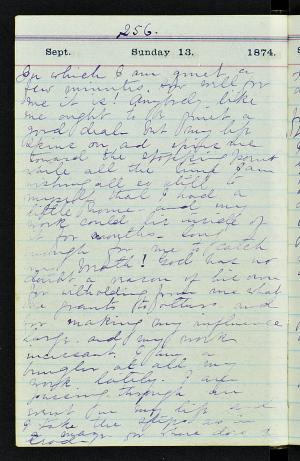 256.
Sept. Sunday 13. 1874.
In which I am quiet a
few minutes. How well for
me it is! Anybody like
me ought to be quiet a
good deal. But my life
skims on, ad
toward the stopping point
while all the time I am
wishing all so still to
myself that I had a
little home and my
work could be inside of
it for months - long
enough for me to catch
my breath! God has no
doubt a reason of his own
for witholding from me what
he grants to others and
for making my influence
large and my work
incessant. I am a
bungler at all my
work lately. I am
passing through an
in my life and
I take the steps as in
on